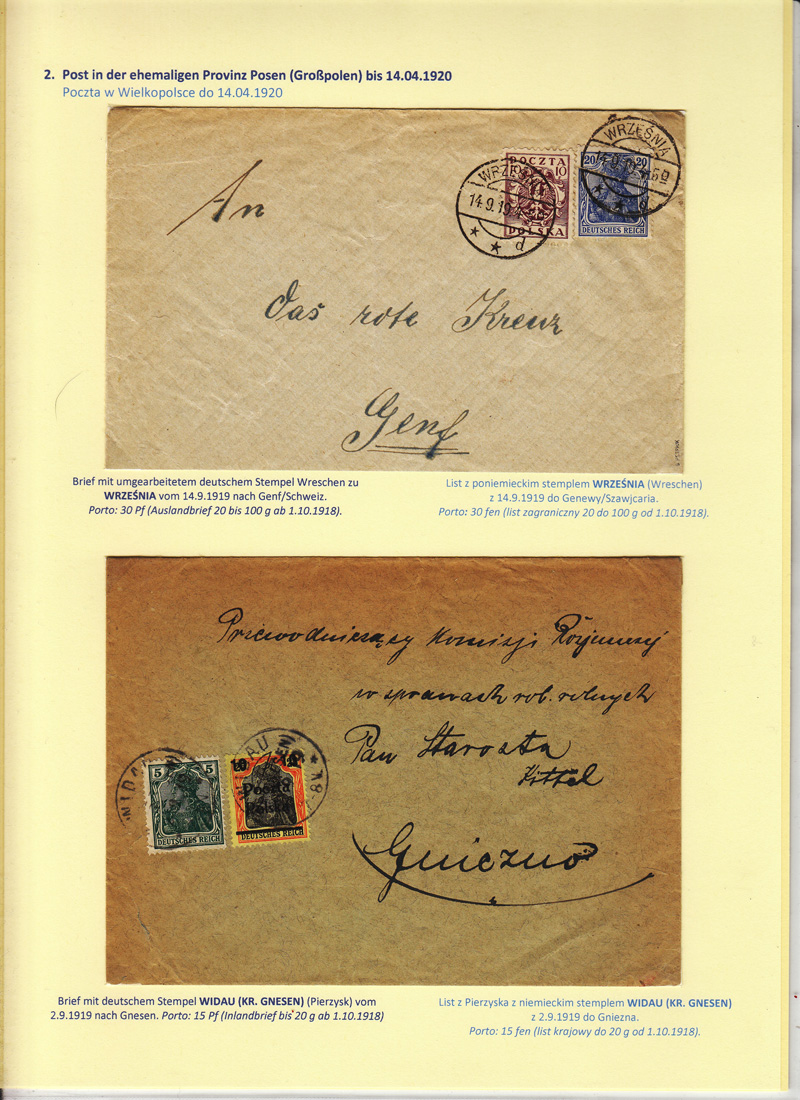 2. Post in der ehemaligen Provinz Posen (Großpolen) bis 14.04.1920
Poczta w Wielkopolsce do 14.04.1920
WRZEŚNIA
14.9.19
d
POCZTA
10
POLSKA
WRZEŚNIA
20 20
DEUTSCHES REICH
An
Das rote Kreuz
Genf
Brief mit umgearbeitetem deutschem Stempel Wreschen zu
WRZEŚNIA vom 14.9.1919 nach Genf/Schweiz.
Porto: 30 Pf (Auslandbrief 20 bis 100 g ab 1.10.1918).
List z poniemieckim stemplem WRZEŚNIA (Wreschen)
z 14.9.1919 do Genewy/Szawjcaria.
Porto: 30 fen (list zagraniczny 20 do 100 g od 1.10.1918).
Przewodniczący Komisji
w sprawach rob. rolnych
Pan Starosta
Kittel
Gniezno
5 5
DEUTSCHES REICH
10
Poczta
Polska
DEUTSCHES REICH
Brief mit deutschem Stempel WIDAU (KR. GNESEN) (Pierzysk) vom
2.9.1919 nach Gnesen. Porto: 15 Pf (Inlandbrief bis 20 g ab 1.10.1918)
List z Pierzyska z niemieckim stemplem WIDAU (KR. GNESEN)
z 2.9.1919 do Gniezna.
Porto: 15 fen (list krajowy do 20 g od 1.10.1918).